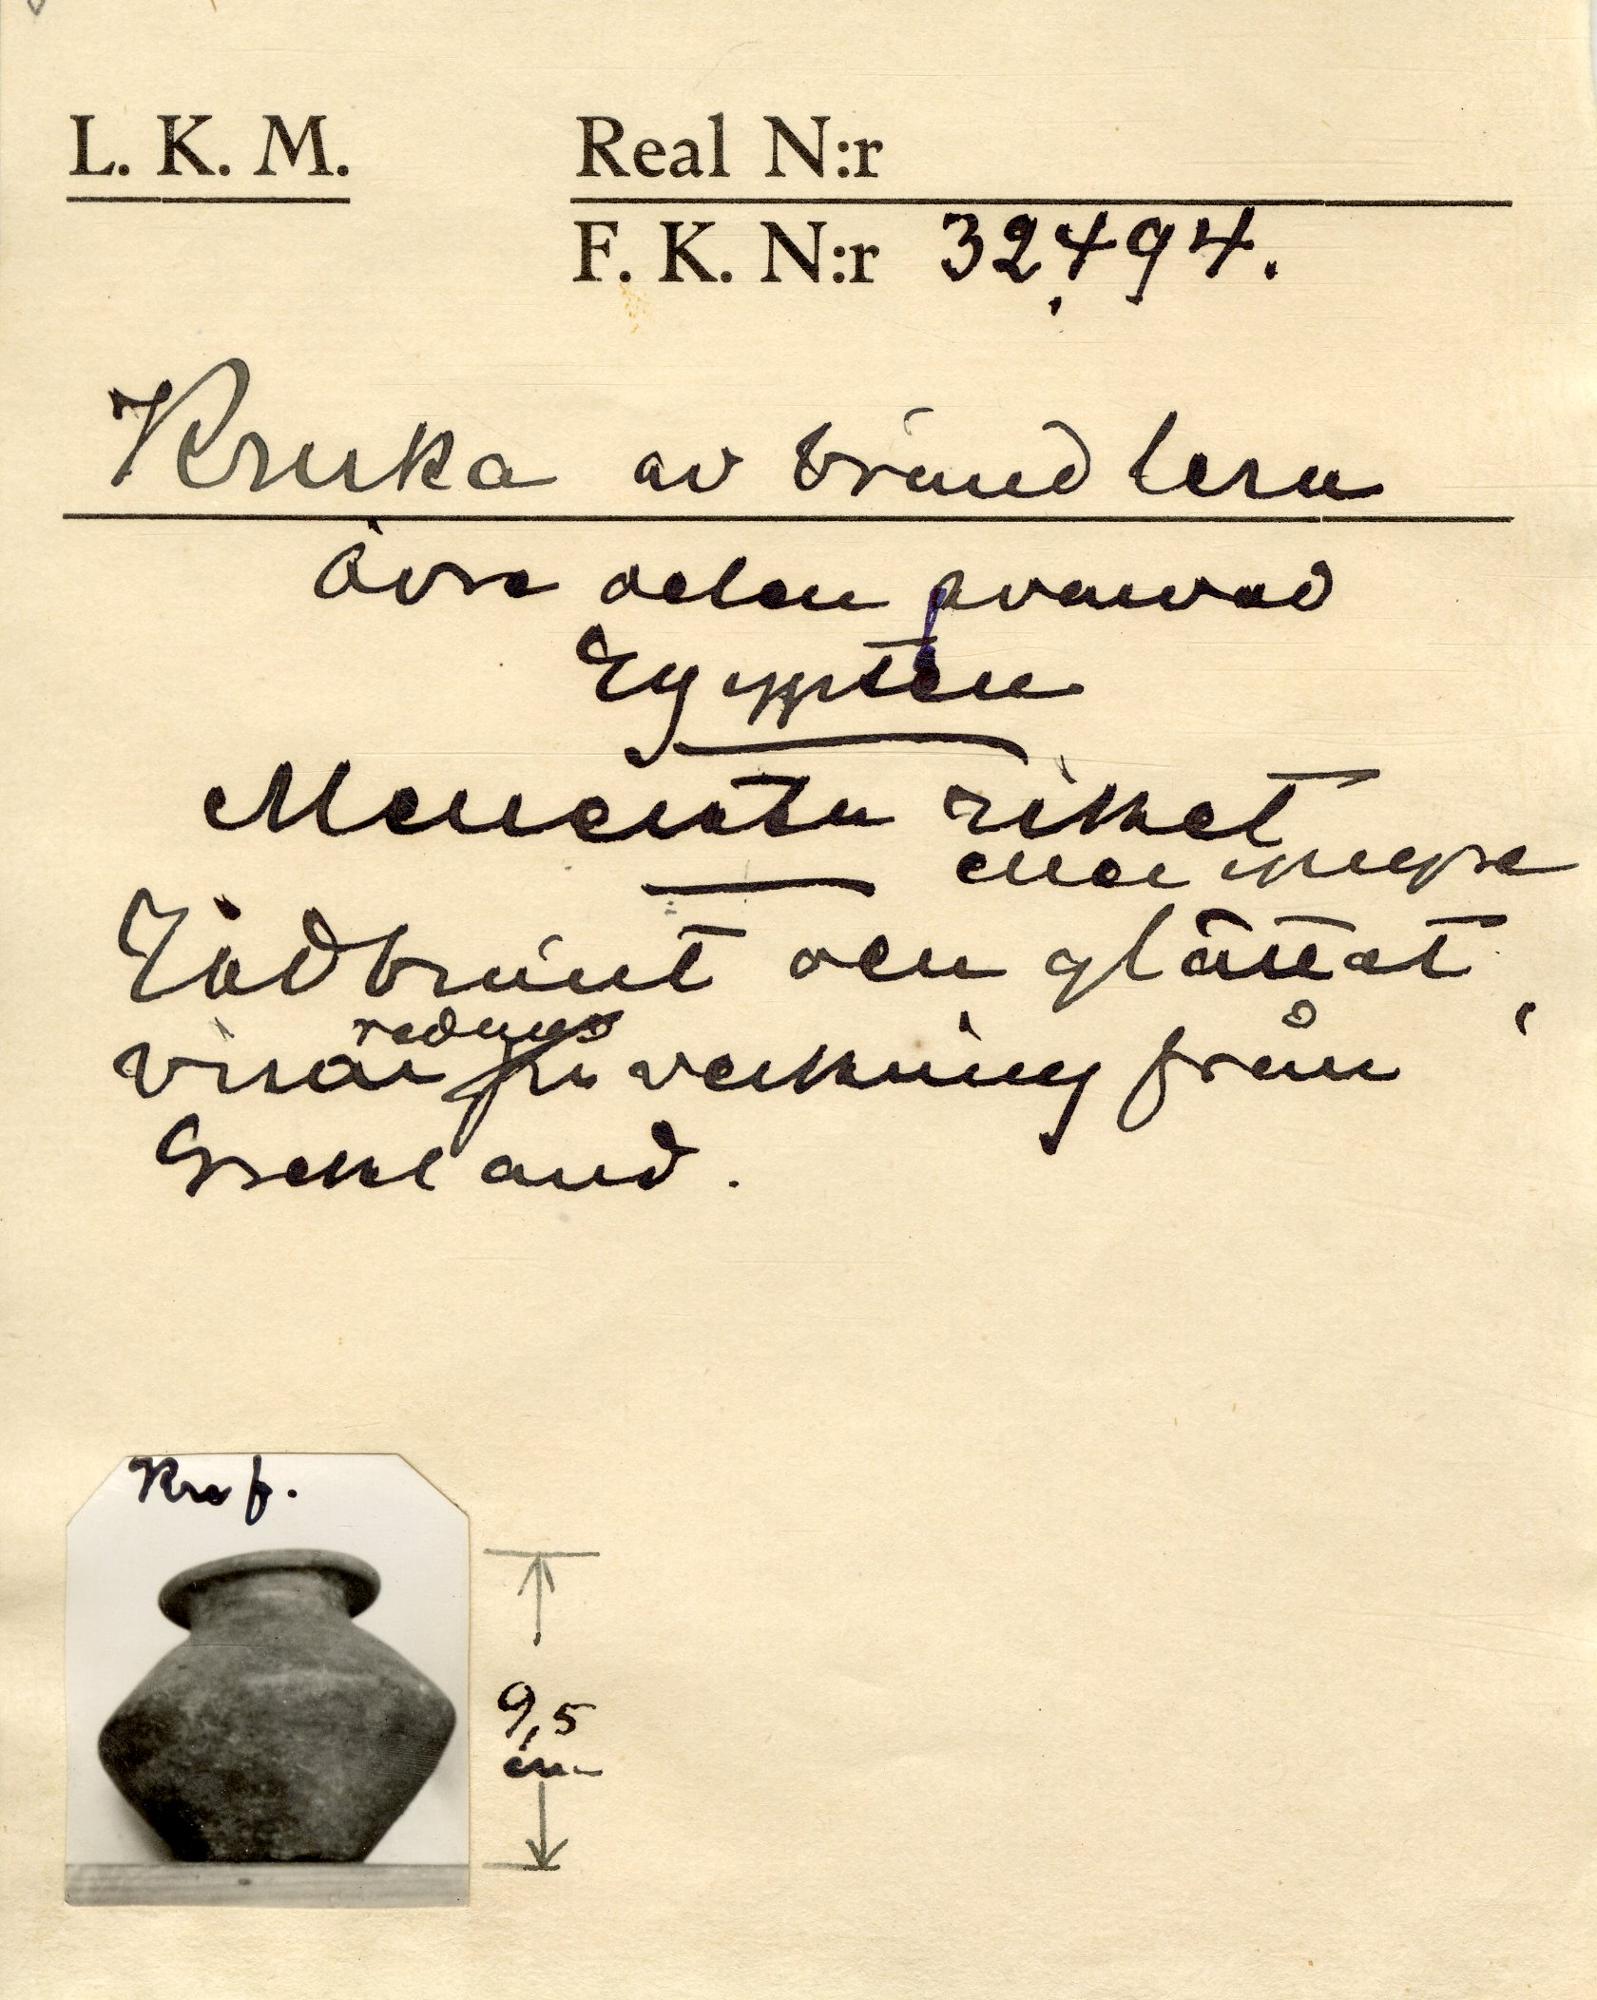 L. K. M.
Real N:r
F. K. N:r 32,494.
Kruka av bränd lera
Övre delen svarvad
Egypten
Mellersta riket
eller yngre
Rödbränt och glättat,
visar redan påverkning från
Grekland.
Kruk.
9,5
cm